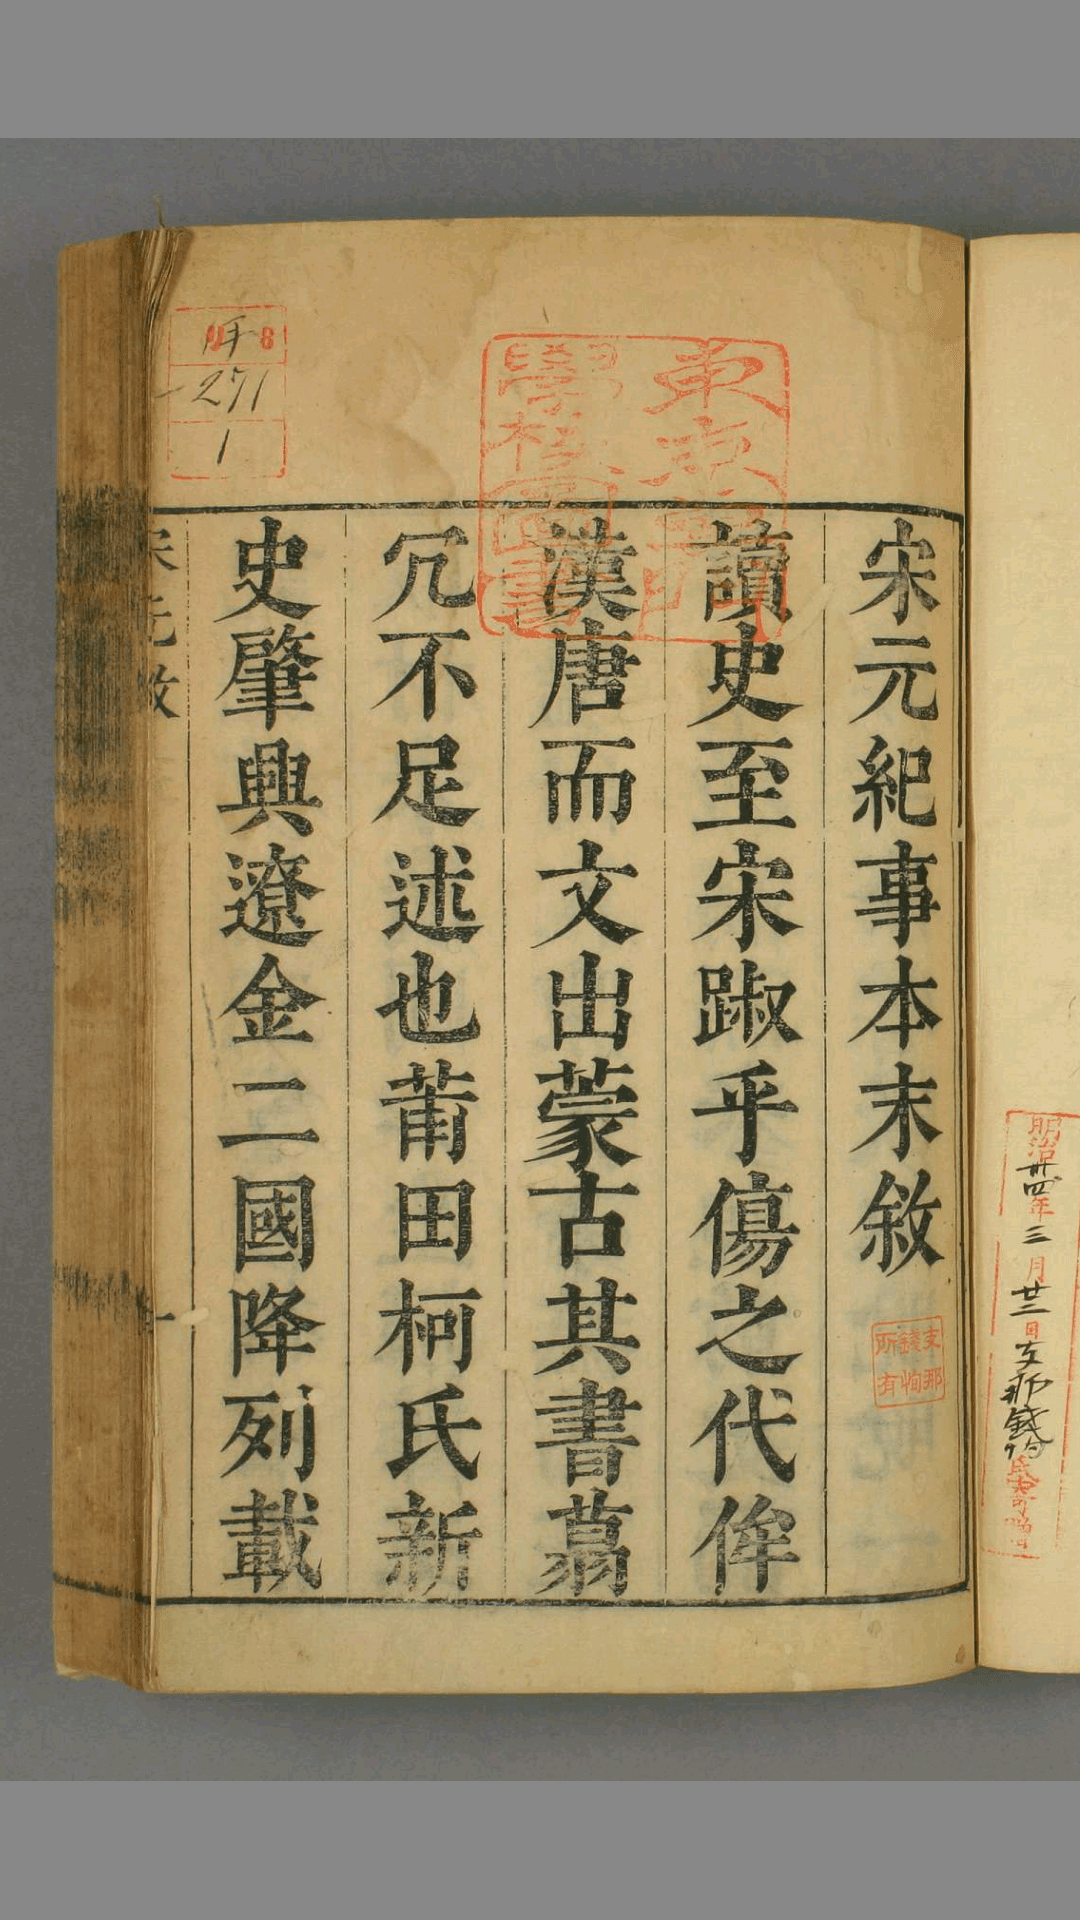 宋元紀事本末敘
讀史至宋踧乎傷之代侔
漢唐而文出蒙古其書蕞
冗不足述也莆田柯氏新
史肇興遼金二國降列載
宋元敘
一
支那
錢恂
所有
明治卅四年三月廿二日支那錢恂氏寄贈
8
271
1